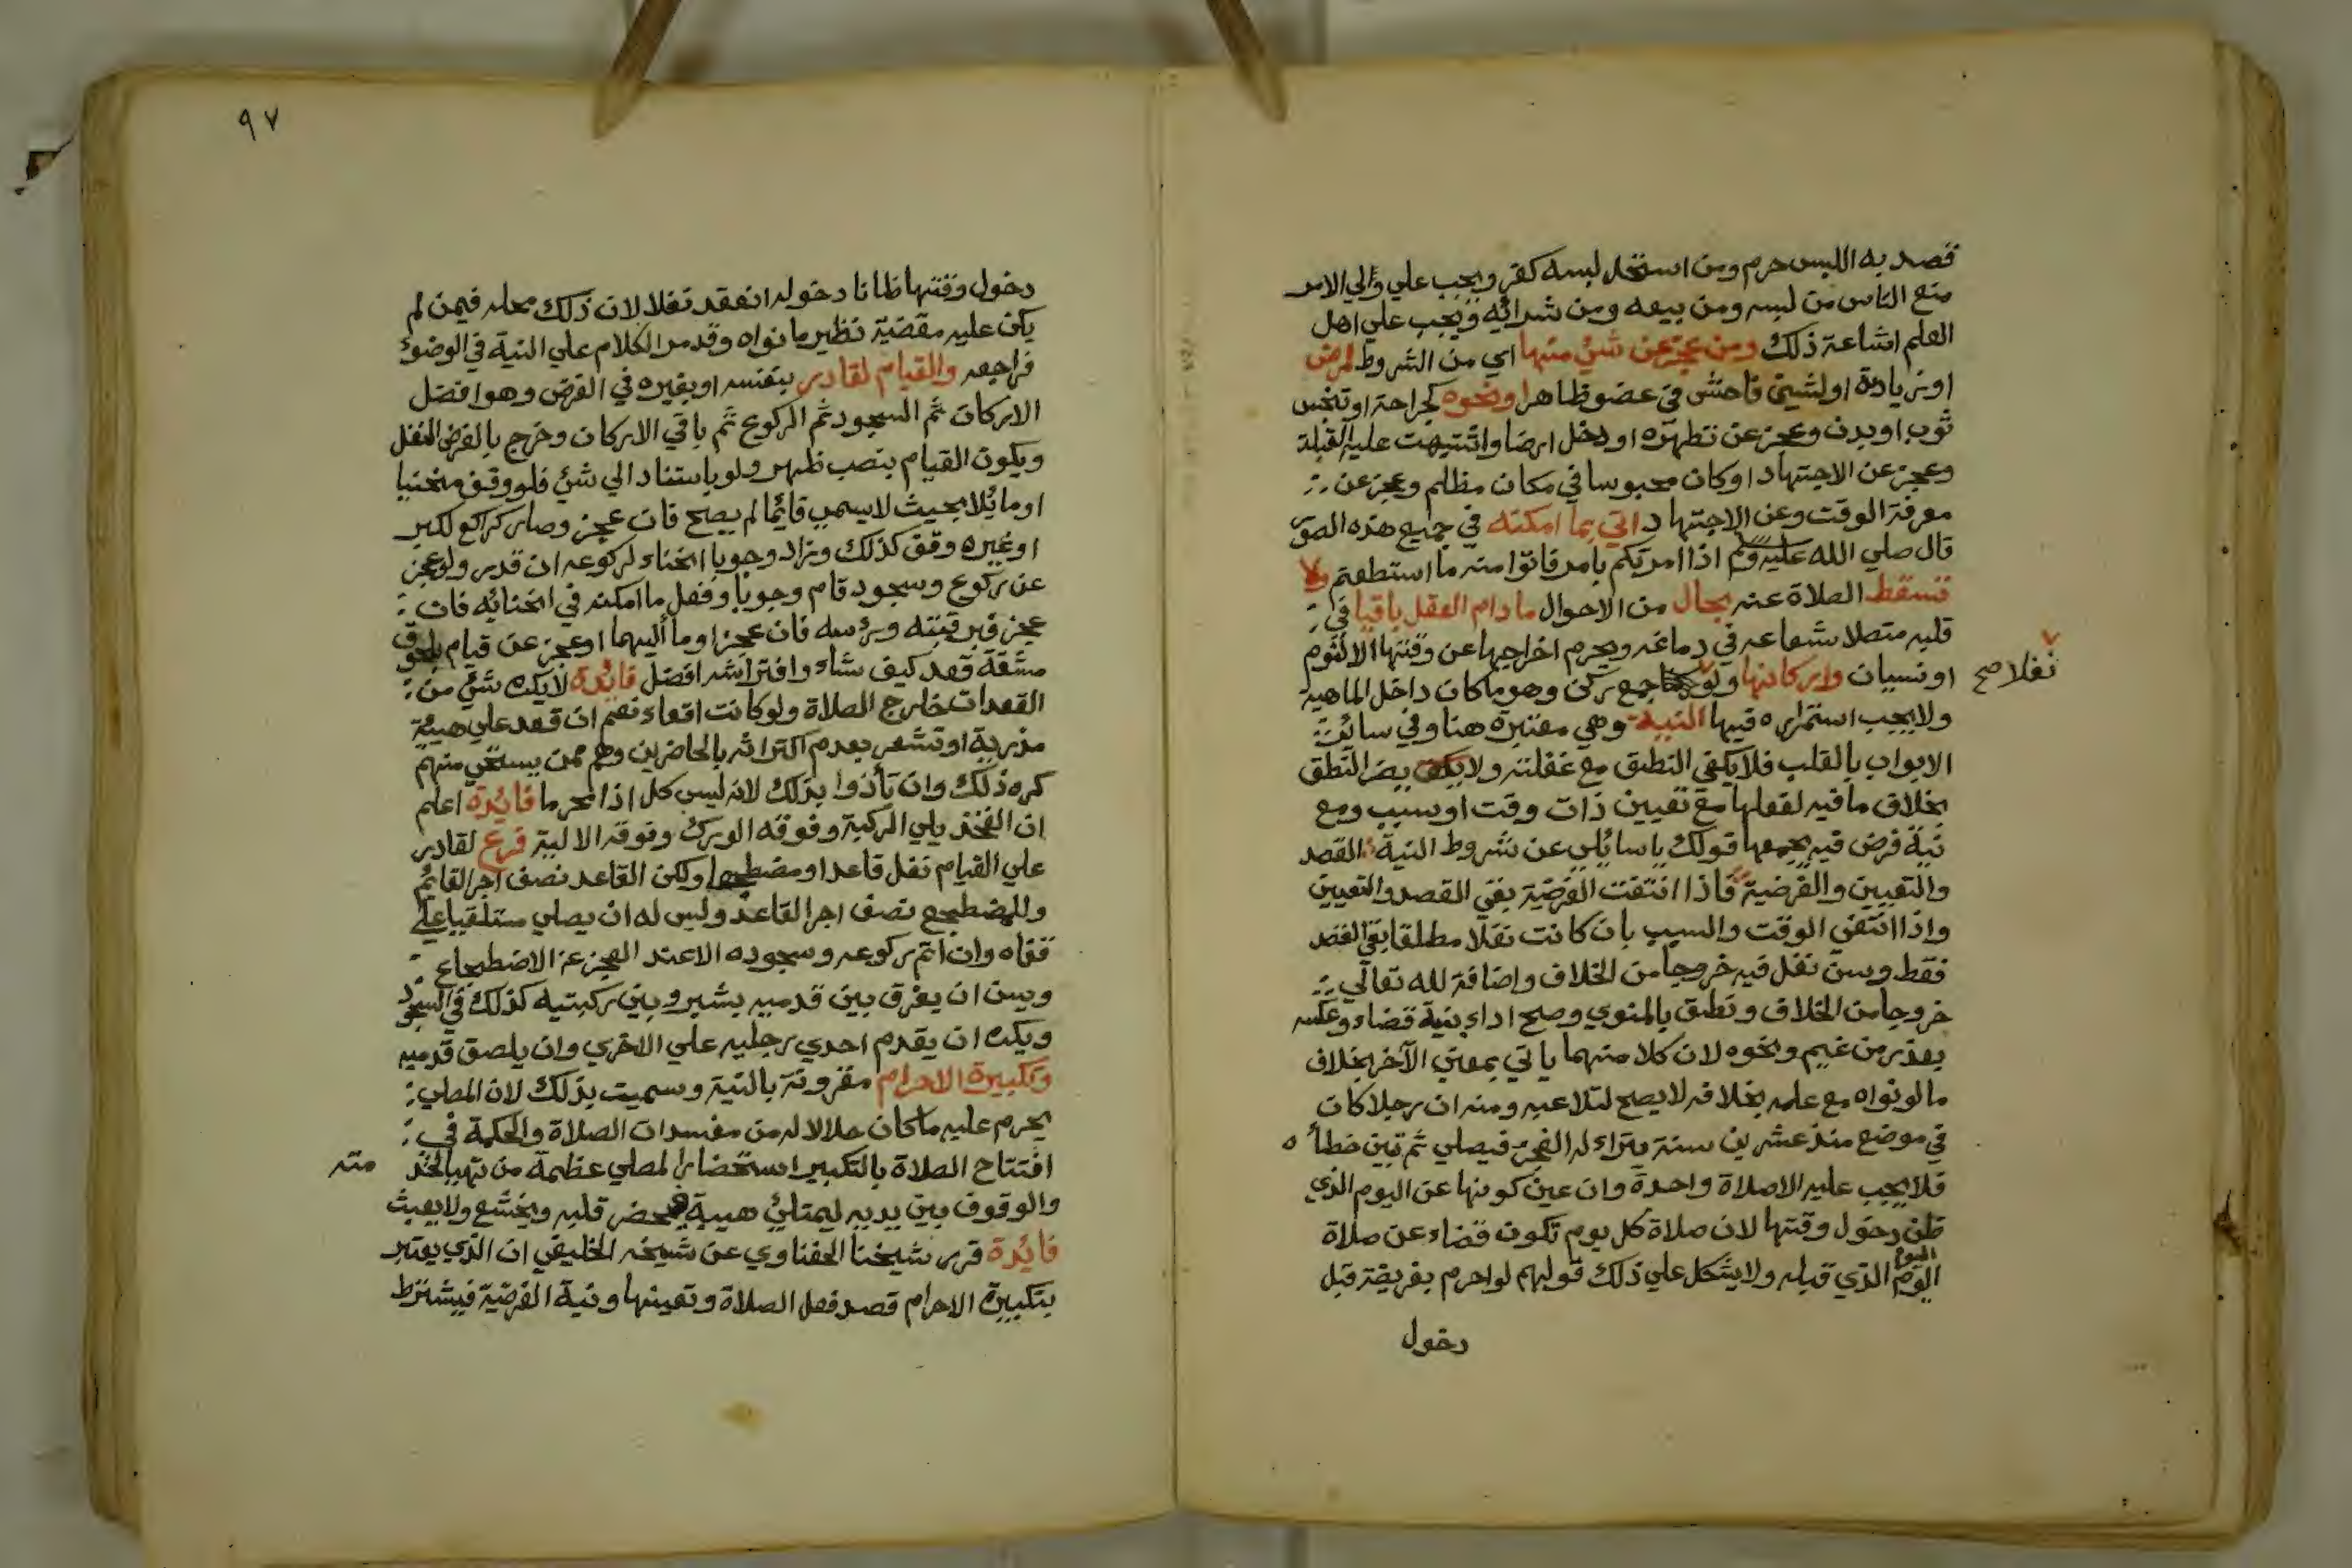 قصد به اللبس حرم ومن استحل لبسه كفر ويجب علي والي الامر
منع الناس من لبسه ومن بيعه ومن شرائه ويجب علي اهل
العلم اشاعة ذلك ومن عجز عن شئ منها اي من الشروط لمرض
او زيادة او لشين فاحش في عضو ظاهر او نحوه كجراحة او تنجس
ثوب او بدن وعجز عن تطهره او دخل ارضا واشتبهت عليه القبلة
وعجز عن الاجتهاد او كان محبوسا في مكان مظلم وعجز عن
معرفة الوقت وعن الاجتهاد اتي بما امكنه في جميع هذه الصور
قال صلي الله عليه وسلم اذا امرتكم بامر فاتوا منه ما استطعتم ولا
تسقط الصلاة عنه بحال من الاحوال ما دام العقل باقيا في
قلبه متصلا شعاعه في دماغه ويحرم اخراجها عن وقتها الا لنوم
او نسيان واركانها ولو جمع ركن وهو ما كان داخل الماهية
نفلا صح
ولا يجب استمراره فيها النية وهي معتبرة هنا وفي سائر
الابواب بالقلب فلا يكفي النطق مع غفلته ولا يضر النطق
بخلاف ما فيه لفعلها مع تعيين ذات وقت او سبب ومع
نية فرض فيه يجمعها قولك يا سائلي عن شروط النية القصد
والتعيين والفرضية فاذا انتفت الفرضية بقي القصد والتعيين
واذا انتفي الوقت والسبب بان كانت نفلا مطلقا بقي القصد
فقط وسن نفل فيه خروجا من الخلاف واضافة لله تعالي
خروجا من الخلاف ونطق بالمنوي وصح اداء بنية قضاء وعكسه
بعذر من غيم ونحوه لان كلا منهما ياتي بمعني الآخر بخلاف
ما لو نواه مع علمه بخلافه لا يصح لتلاعبه ومنه ان رجلا كان
في موضع منذ عشرين سنة يتراءله الفجر فيصلي ثم تبين خطأه
فلا يجب عليه الا صلاة واحدة وان عين كونها عن اليوم الذي
ظن دخول وقتها لان صلاة كل يوم تكون قضاء عن صلاة
اليوم
اليوم الذي قبله ولا يشكل علي ذلك قولهم لو احرم بفريضة قبل
دخول
٩٧
دخول وقتها ظانا دخوله انعقد نفلا لان ذلك محله فيمن لم
يكن عليه مقضية نظير ما نواه وقد مر الكلام علي النية في الوضوء
فراجعه والقيام لقادر بنفسه او بغيره في الفرض وهو افضل
الاركان ثم السجود ثم الركوع ثم باقي الاركان وخرج بالفرض النفل
ويكون القيام بنصب ظهر ولو باستناد الي شئ فلو وقف منحنيا
او مائلا بحيث لا يسمي قائما لم يصح فان عجز وصار كراكع لكبر
او غيره وقف كذلك وزاد وجوبا انحناء لركوعه ان قدر ولو عجز
عن ركوع وسجود قام وجوبا وفعل ما امكنه في انحنائه فان
عجز فبرقبته ورأسه فان عجز اومأ اليهما او عجز عن قيام بلحوق
مشقة قعد كيف شاء وافتراشه افضل فائدة لا يكره شئ من
القعدات خارج الصلاة ولو كانت اقعاء نعم ان قعد علي هيئة
مزرية او تشعر بعدم اكتراثه بالحاضرين وهم ممن يستحي منهم
كره ذلك وان تأذوا بذلك لانه ليس كل اذا محرما فائدة اعلم
ان الفخذ يلي الركبة وفوقه الورك وفوقه الالية فرع لقادر
علي القيام نفل قاعدا ومضطجعا ولكن القاعد نصف اجر القائم
وللمضطجع نصف اجر القاعد وليس له ان يصلي مستلقيا علي
قفاه وان اتم ركوعه وسجوده الا عند العجز عن الاضطجاع
ويسن ان يفرق بين قدميه بشبر وبين ركبتيه كذلك في السجود
ويكره ان يقدم احدي رجليه علي الاخري وان يلصق قدميه
وتكبيرة الاحرام مقرونة بالنية وسميت بذلك لان المصلي
يحرم عليه ما كان حلالا له من مفسدات الصلاة والحكمة في
افتتاح الصلاة بالتكبير استحضار المصلي عظمة من تهيأ لخدمته
والوقوف بين يديه ليمتلئ هيبة فيحضر قلبه ويخشع ولا يعبث
فائدة قرر شيخنا الحفناوي عن شيخه الخليفي ان الذي يعتبر
بتكبيرة الاحرام قصد فعل الصلاة وتعيينها ونية الفرضية فيشترط